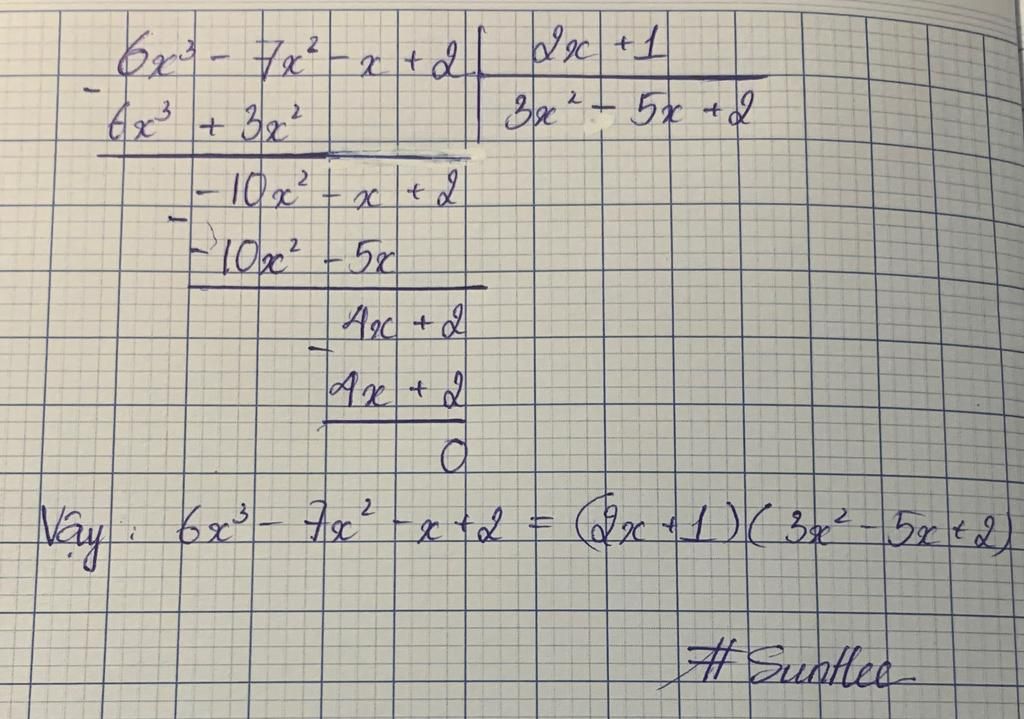 6x³ - 7x² - x + 2 | 2x + 1
- 6x³ + 3x² | 3x² - 5x + 2
-10x² - x + 2
- -10x² - 5x
4x + 2
- 4x + 2
0
Vậy : 6x³ - 7x² - x + 2 = (2x + 1)(3x² - 5x + 2)
#SunHee